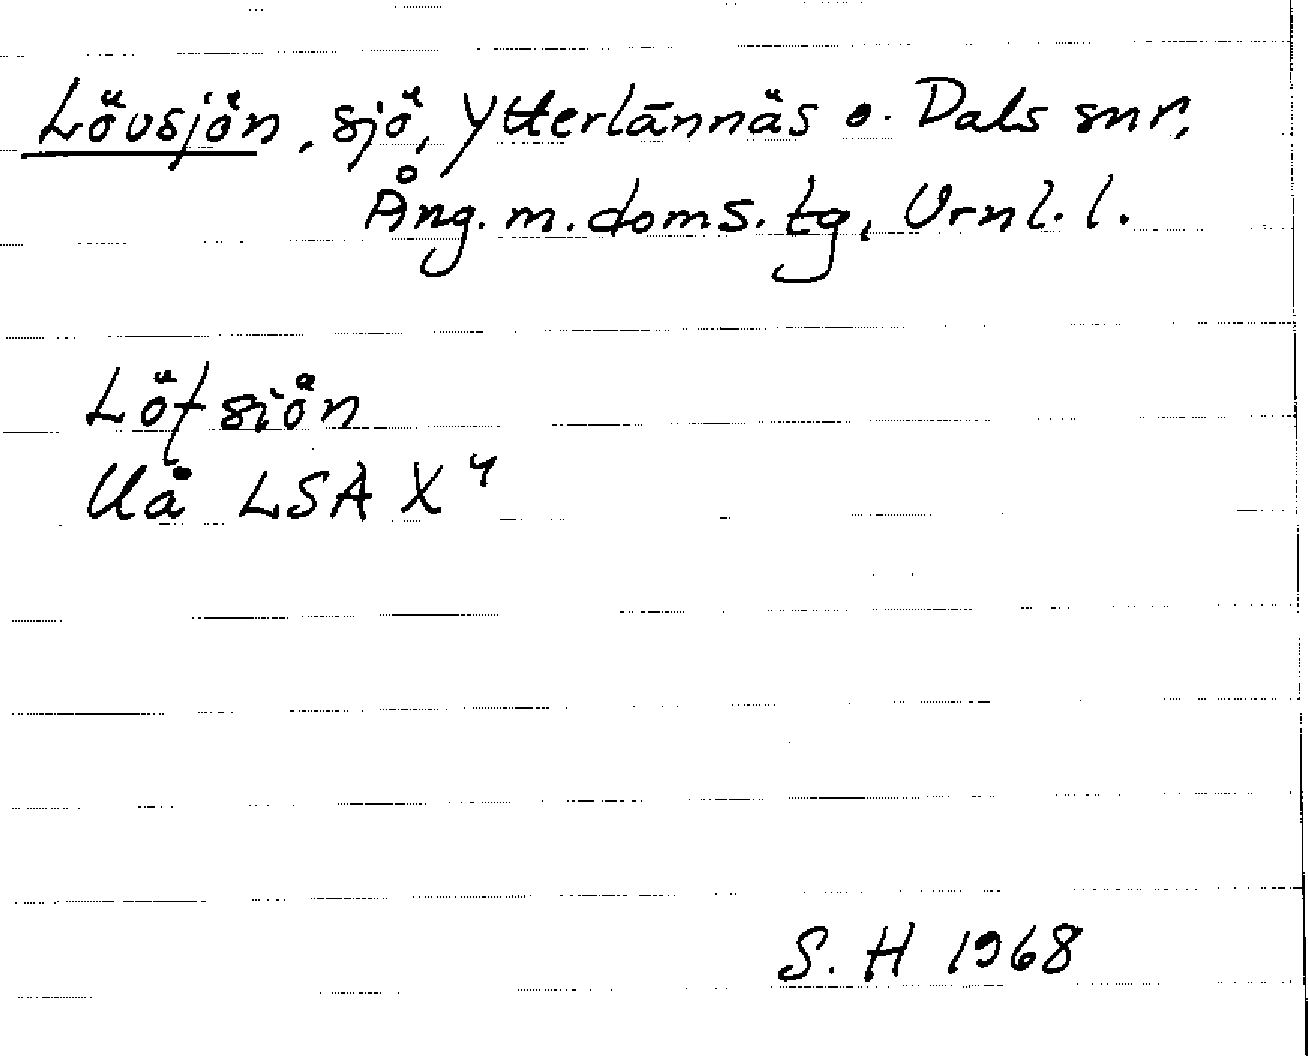 Lövsjön, sjö, Ytterlännäs o. Dals snr,
Ång. m. doms. tg, Vrnl. l.
Löfsiön
Uå LSA X⁴
S. H 1968